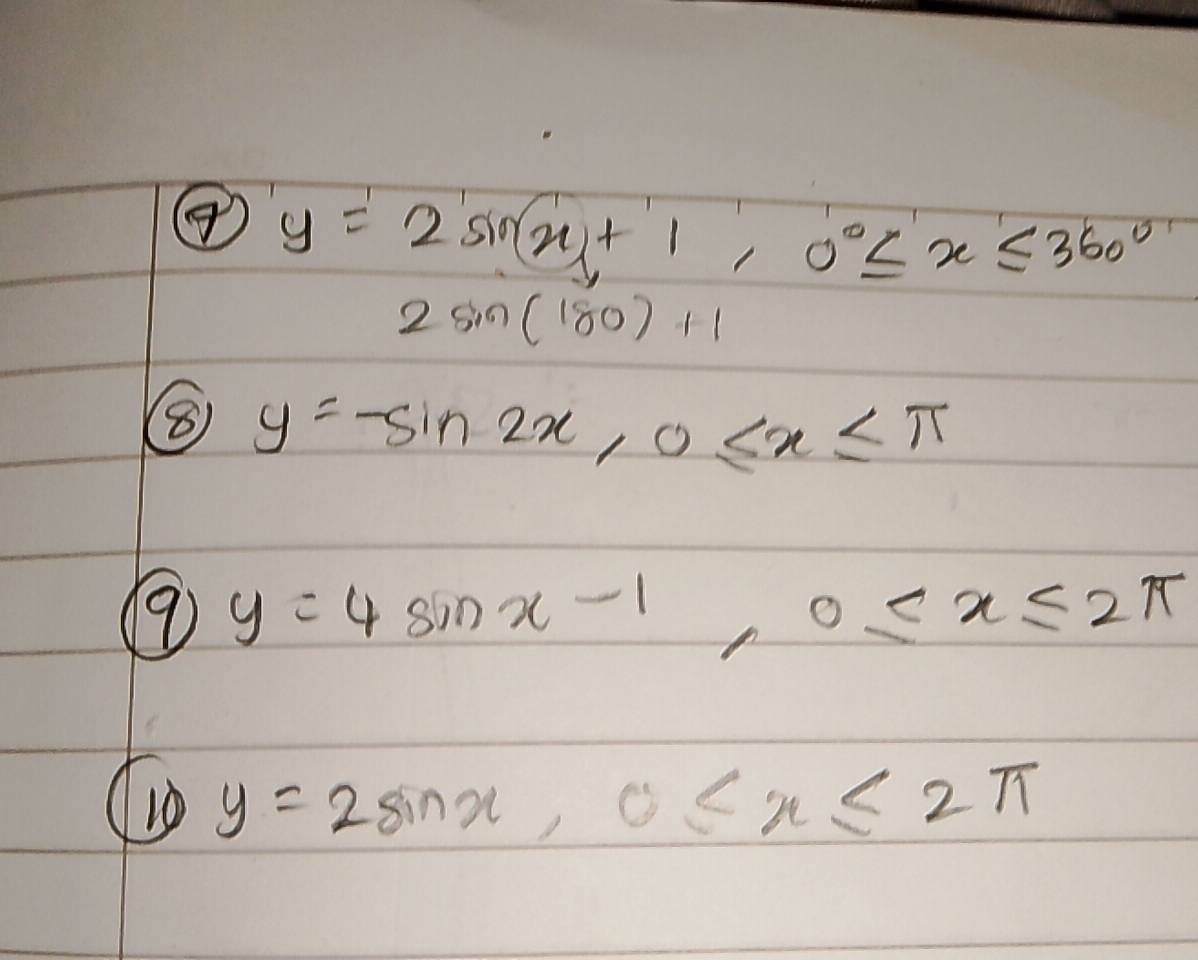 ⑦ y = 2 sin(x) + 1 , 0° ≤ x ≤ 360°
2 sin(180) + 1
⑧ y = -sin 2x , 0 ≤ x ≤ π
⑨ y = 4 sin x - 1 , 0 ≤ x ≤ 2π
⑩ y = 2 sin x , 0 ≤ x ≤ 2π